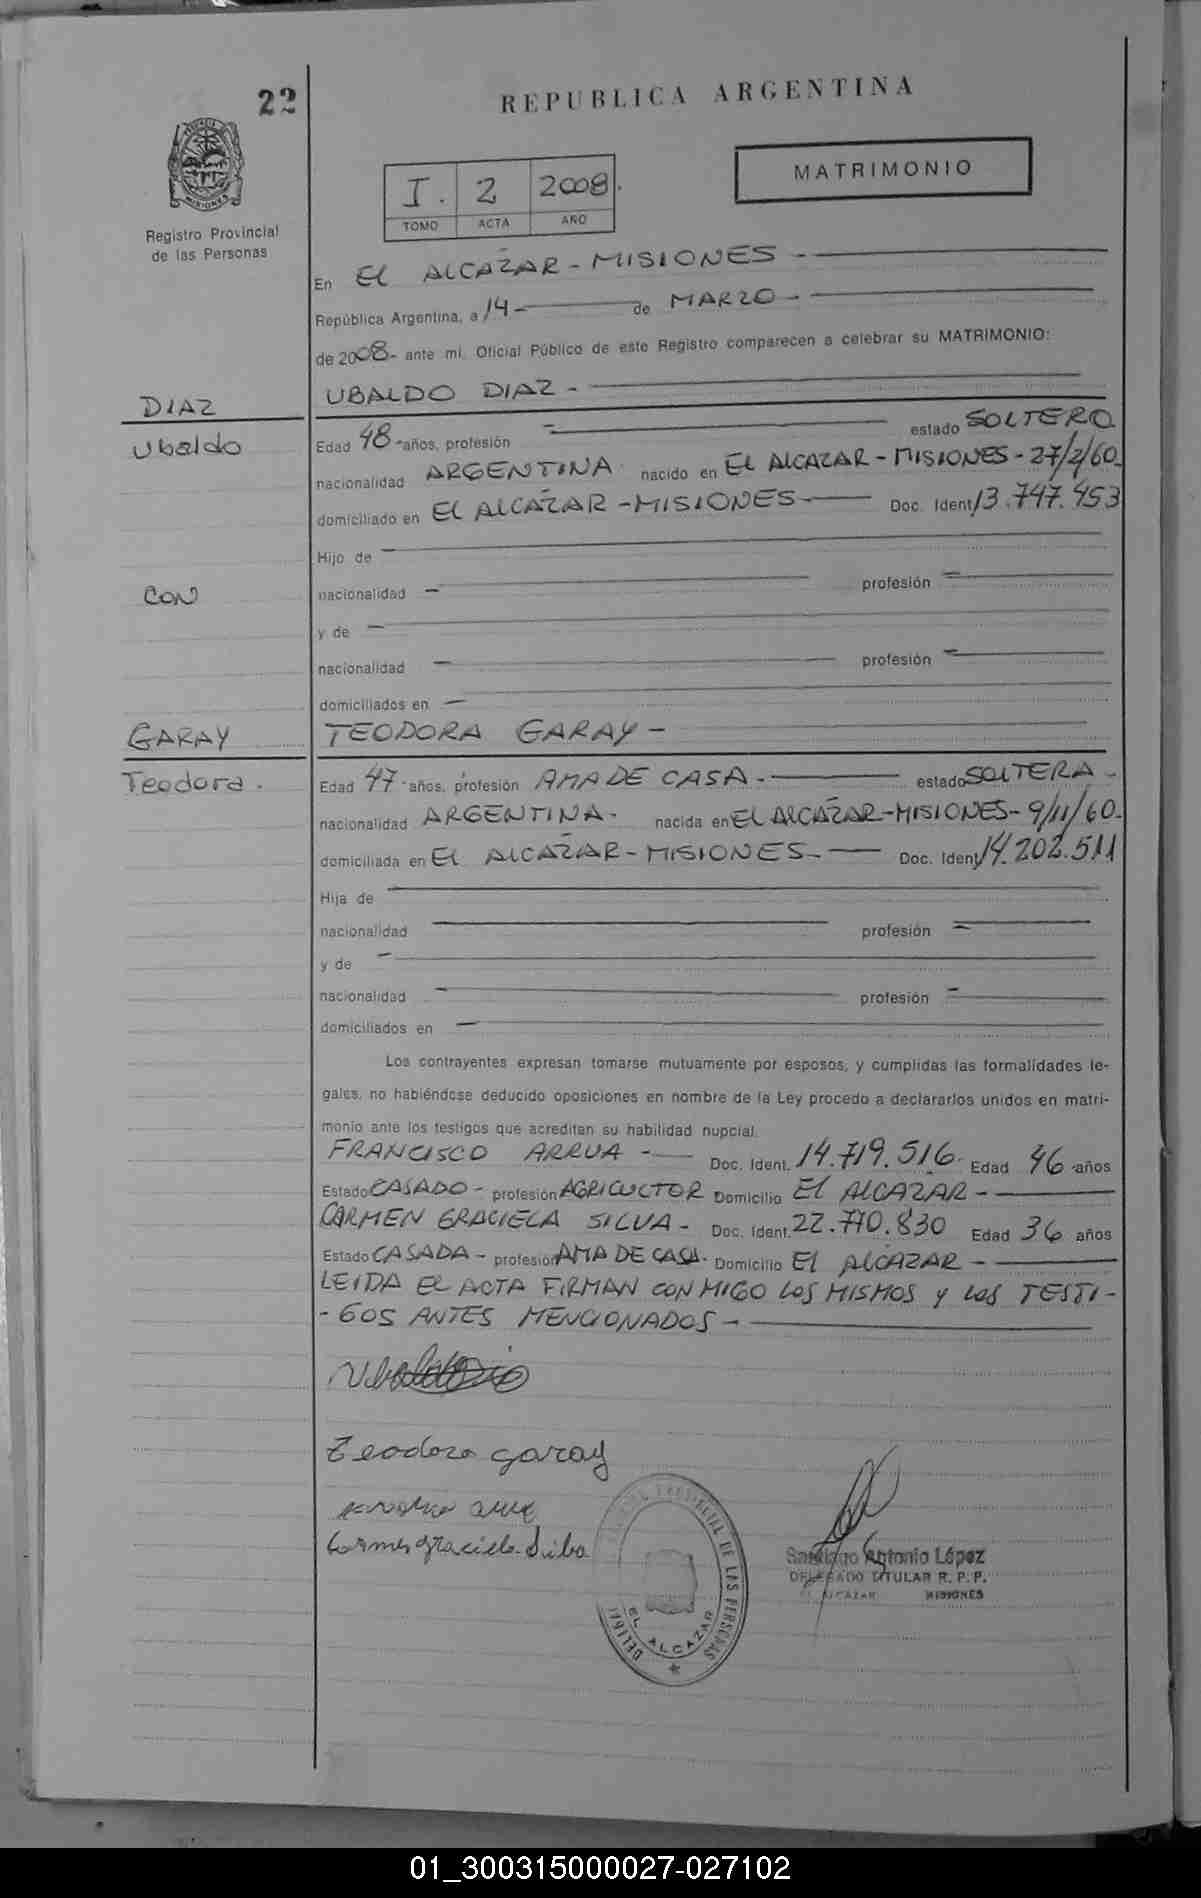 22
REPUBLICA ARGENTINA
MATRIMONIO
I. 2 2008.
TOMO ACTA AÑO
MISIONES
Registro Provincial
de las Personas
En EL ALCAZAR - MISIONES -
República Argentina, a 14 - de MARZO -
de 2008- ante mi, Oficial Público de este Registro comparecen a celebrar su MATRIMONIO:
DIAZ
UBALDO DIAZ -
Ubaldo
Edad 48 - años, profesión - estado SOLTERO.
nacionalidad ARGENTINA nacido en EL ALCAZAR - MISIONES - 27/2/60-
domiciliado en EL ALCAZAR - MISIONES - Doc. Ident. 13.747.453
Hijo de -
CON
nacionalidad - profesión -
y de -
nacionalidad - profesión -
domiciliados en -
GARAY
TEODORA GARAY -
Teodora.
Edad 47 - años, profesión AMA DE CASA - estado SOLTERA -
nacionalidad ARGENTINA - nacida en EL ALCAZAR - MISIONES - 9/11/60-
domiciliada en EL ALCAZAR - MISIONES - Doc. Ident. 14.202.511
Hija de
nacionalidad profesión -
y de -
nacionalidad - profesión -
domiciliados en -
Los contrayentes expresan tomarse mutuamente por esposos, y cumplidas las formalidades le-
gales, no habiéndose deducido oposiciones en nombre de la Ley procedo a declararlos unidos en matri-
monio ante los testigos que acreditan su habilidad nupcial.
FRANCISCO ARRUA - Doc. Ident. 14.719.516- Edad 46 años
Estado CASADO - profesión AGRICULTOR Domicilio EL ALCAZAR -
CARMEN GRACIELA SILVA - Doc. Ident. 22.770.830 Edad 36 años
Estado CASADA - profesión AMA DE CASA- Domicilio EL ALCAZAR -
LEIDA EL ACTA FIRMAN CONMIGO LOS MISMOS Y LOS TESTI-
-GOS ANTES MENCIONADOS -
Teodora garay
Carmen graciela Silva
PROVINCIAL DE LAS PERSONAS
EL ALCAZAR
Santiago Antonio López
DELEGADO TITULAR R. P. P.
EL ALCAZAR MISIONES
01_300315000027-027102